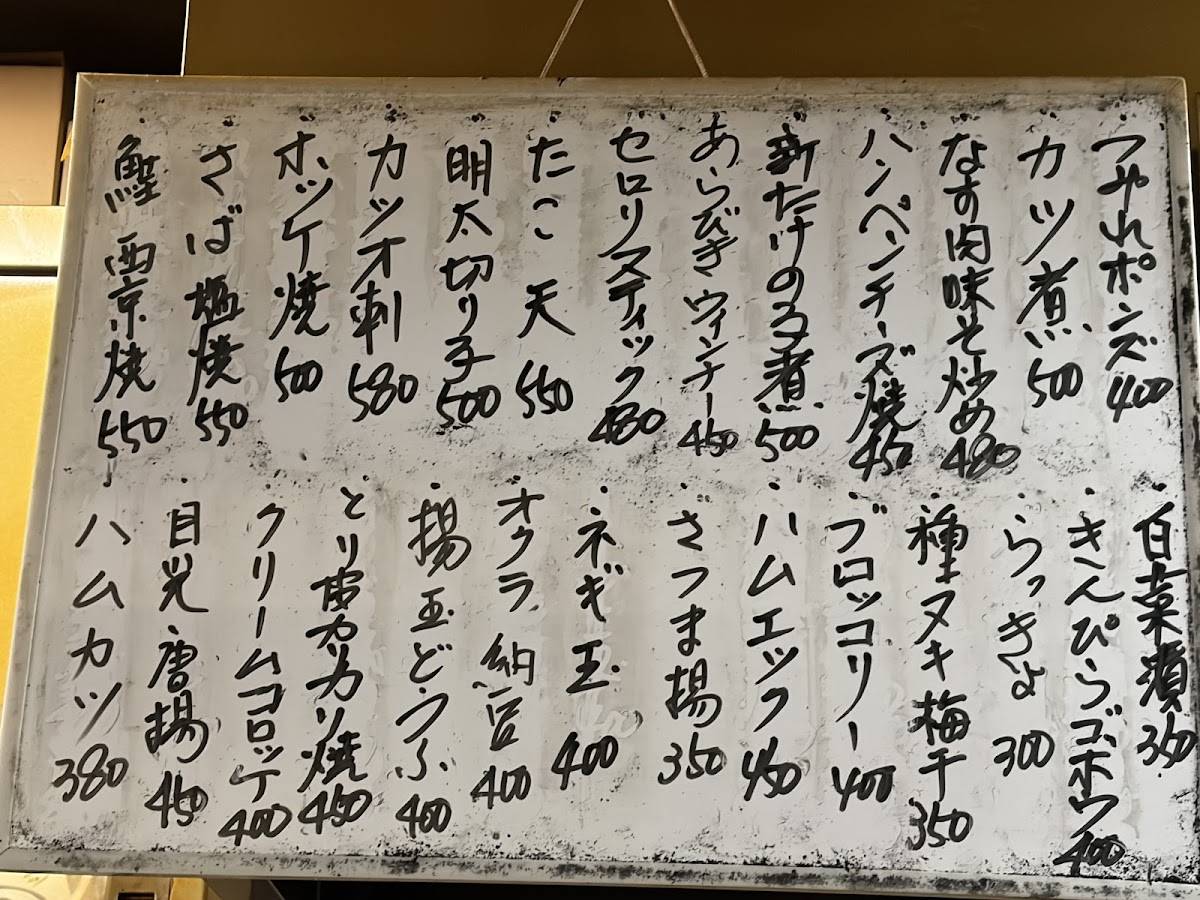 つみれポンズ 400
カツ煮 500
なす肉味そ炒め 480
ハンペンチーズ焼 450
新たけの子煮 500
あらびきウィンナー 450
セロリスティック 480
たこ天 550
明太切り子 500
カツオ刺 580
ホッケ焼 500
さば塩焼 550
鰹西京焼 550
白菜漬 350
きんぴらゴボウ 400
らっきょ 300
種ヌキ梅干 350
ブロッコリー 400
ハムエッグ 450
さつま揚 350
ネギ玉 400
オクラ納豆 400
揚玉どうふ 400
とり串カリカリ焼 450
クリームコロッケ 400
目光唐揚 450
ハムカツ 380